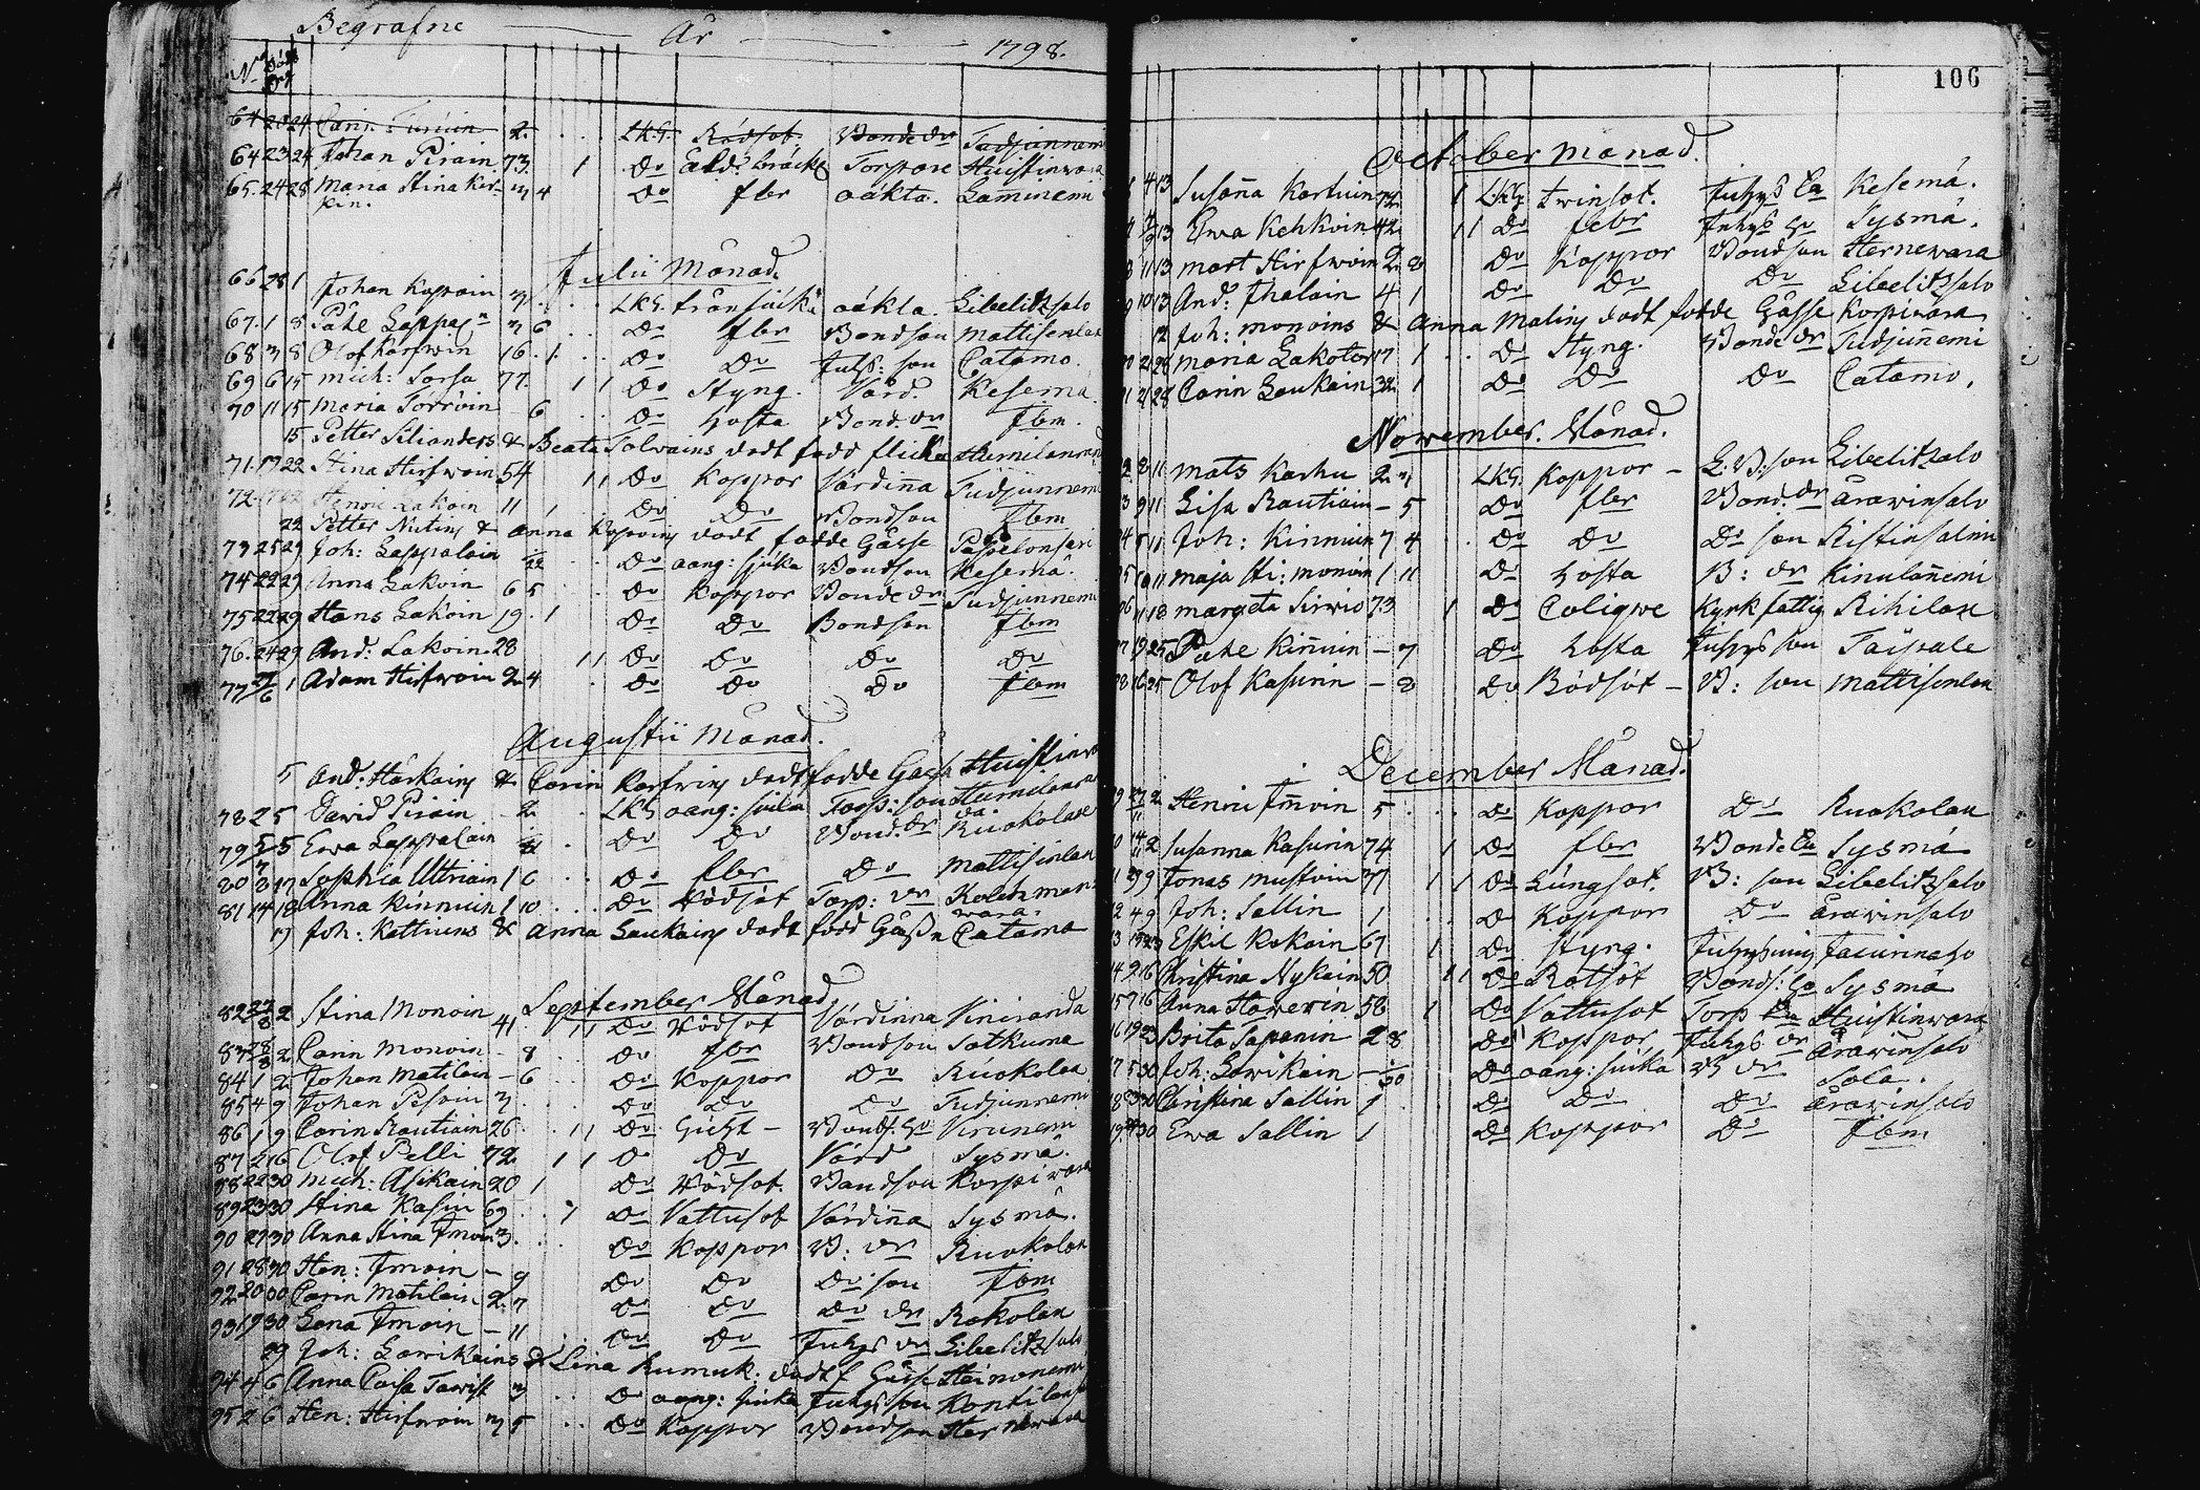 Begrafne År 1798.
No
64 20 24 Carin Turuin 2. LKG. Rödsot. Bonde dr Tudjunnemi
64 23 24 Johan Pirain 73. 1 Do Ald: bräckl Torpare Huistinvara
65. 24 28 Maria Stina Kar- 3 4 Do fbr oäkta. Laminemi
kin.
Julii Månad.
66 28 1 Johan Kopoin 3 LKG. oäkta. Libelitzsalo
67. 1 8 Påhl Lappal:n 3 6 Do fbr Bondson Mattisenlax
68 3 8 Olof Karfwin 16. 1 Do Do Juhs: son Catamo.
69 6 15 Mich: Sorsa 77. 1 1 Do Styng. Värd. Kesemä.
70 11 15 Maria Törröin - 6 Do Hosta Bond. dr Ibm.
15 Petter Silianders & Beata Tolvains dödt född flicka Humilanrand
71. 17 22 Stina Hirfwoin 54 1 1 Do Koppor Värdinna Tudjunnemi
72. 17 22 Henric Lakoin 11 Do Do Bondson Ibm
22 Petter Mutins & Anna Kopoins dödt födde Gåsse Papelonsari
73 25 29 Joh: Lappalain Do oang: sjuka Bondson Kesemä.
74 22 29 Anna Lakoin 6 5 Do Koppor Bonde dr Tudjunnemi
75 22 29 Hans Lakoin 19. 1 Do Do Bondson Ibm
76. 24 29 And: Lakoin 28 1 1 Do Do Do Do
77 27/6 1 Adam Hirfwoin 2 4 Do Do Do Ibm
Augustii Månad.
5 And: Härkains & Carin Karfwins dödt födde Gåsse Huistinvara
78 2 5 David Pirain - 2 LKG oang: sjuka Torp: son Humilanra
79 5 Ewa Lappalain Do Do Bond: dr Ruokolax
80 8 12 Sophia Uttriain 1 6 Do fbr Do Mattisenlax
81 14 18 Anna Kinnuin 1 10 Do Rödsot Torp: dr Kolehmans
wara.
19 Joh: Kettuins & Anna Laukains dödt född Gåsse Catamo
September Månad
82 27/8 2 Stina Monoin 41 1 1 Do Rödsot Värdinna Viniranda
83 28/8 2 Carin Monoin - 8 Do fbr Bondson Sotkuma
84 1 2 Johan Matilain - 6 Do Koppor Do Ruokolax
85 4 9 Johan Pesoin 3 Do Do Do Tudjunnemi
86 1 9 Carin Rautiain 26 1 1 Do Gicht - Bonds. Hu Virunemi
87 2 16 Olof Pelli 72 1 1 Do Do Värd Sysmä.
88 22 30 Mich: Asikain 20 1 Do Rödsot. Bondson Korpivara
89 23 30 Stina Kasin 69 1 Do Vattusot Värdinna Sysmä.
90 27 30 Anna Stina Imoin 3 Do Koppor B: dr Ruokolax
91 28 30 Hen: Imoin - 9 Do Do Do son Ibm
92 20 30 Carin Matilain 2. 7 Do Do Do dr Rokolax
93 19 30 Lena Imoin - 11 Do Do Juhgs dr Libelitzsalo
29 Joh: Lawikains & Lina Kumuk: dödt f Gåsse Heinonemi
94 4 6 Anna Caisa Tawist 3 Do oang: sjuka Juhgs son Kontilax
95 2 6 Hen: Hirfwoin 3 5 Do Koppor Bondson Hernewara
106
October Månad.
4 13 Susanna Kortuin 72 1 LKG Twinsot. Juhgs Ea Kesemä.
13 Ewa Kehkoin 42 1 1 Do febr Juhgs Hu Sysmä.
11 13 Mart Hirfwoin 2 8 Do Koppor Bondson Hernewara
10 13 And: Ihalain 4 1 Do Do Do Libelitzsalo
12 Joh: Monoins & Anna Malins dödt födde Gåsse Korpivara
21 28 Maria Lakoton 17 1 Do Styng. Bonde dr Tudjunnemi
21 28 Carin Laukain 32 1 Do Do Do Catamo.
November Månad.
8 11 Mats Karhu 2 3 LKG. Koppor - L. B: son Libelitzsalo
9 11 Lisa Rautiain - 5 Do fbr Bond. dr Arawinsalo
11 Joh: Kinnuin 7 4 Do Do Do son Ristinsalmi
10 11 Maja Sti: Monoin 1 11 Do Hosta B: dr Kinulanemi
11 18 Margeta Sirwio 73 1 Do Coliqve Kyrkfattig Rihilax
19 25 Påhl Kinnuin - 7 Do Hosta Juhgs son Taipale
16 25 Olof Kasurin - 8 Do Bödsot - B: son Mattisenlax
December Månad.
27/11 2 Henric Imoin 5 Do Koppor Do Ruokolax
2 Susanna Kasurin 74 1 Do fbr Bonde Ea Sysmä
3 9 Jonas Mustoin 37 1 1 Do Lungsot. B: son Libelitzsalo
4 9 Joh: Sallin 1 Do Koppor Do Arawinsalo
Eskil Kokain 67 1 Do Styng. Juhgs
9 16 Christina Nykain 50 1 1 Do Rotsot Bonds: Ea Sysmä
7 16 Anna Hawerin 58 1 Do Vattusot Torp Ea Huistinwara
19 23 Brita Tapanin 2 8 Do Koppor Juhgs dr Arawinsalo
5 30 Joh: Lawikain - Do oang: sjuka B dr Sola.
30 Christina Sallin 1 Do Do Do Arawinsalo
30 Ewa Sallin 1 Do Koppor Do Ibm